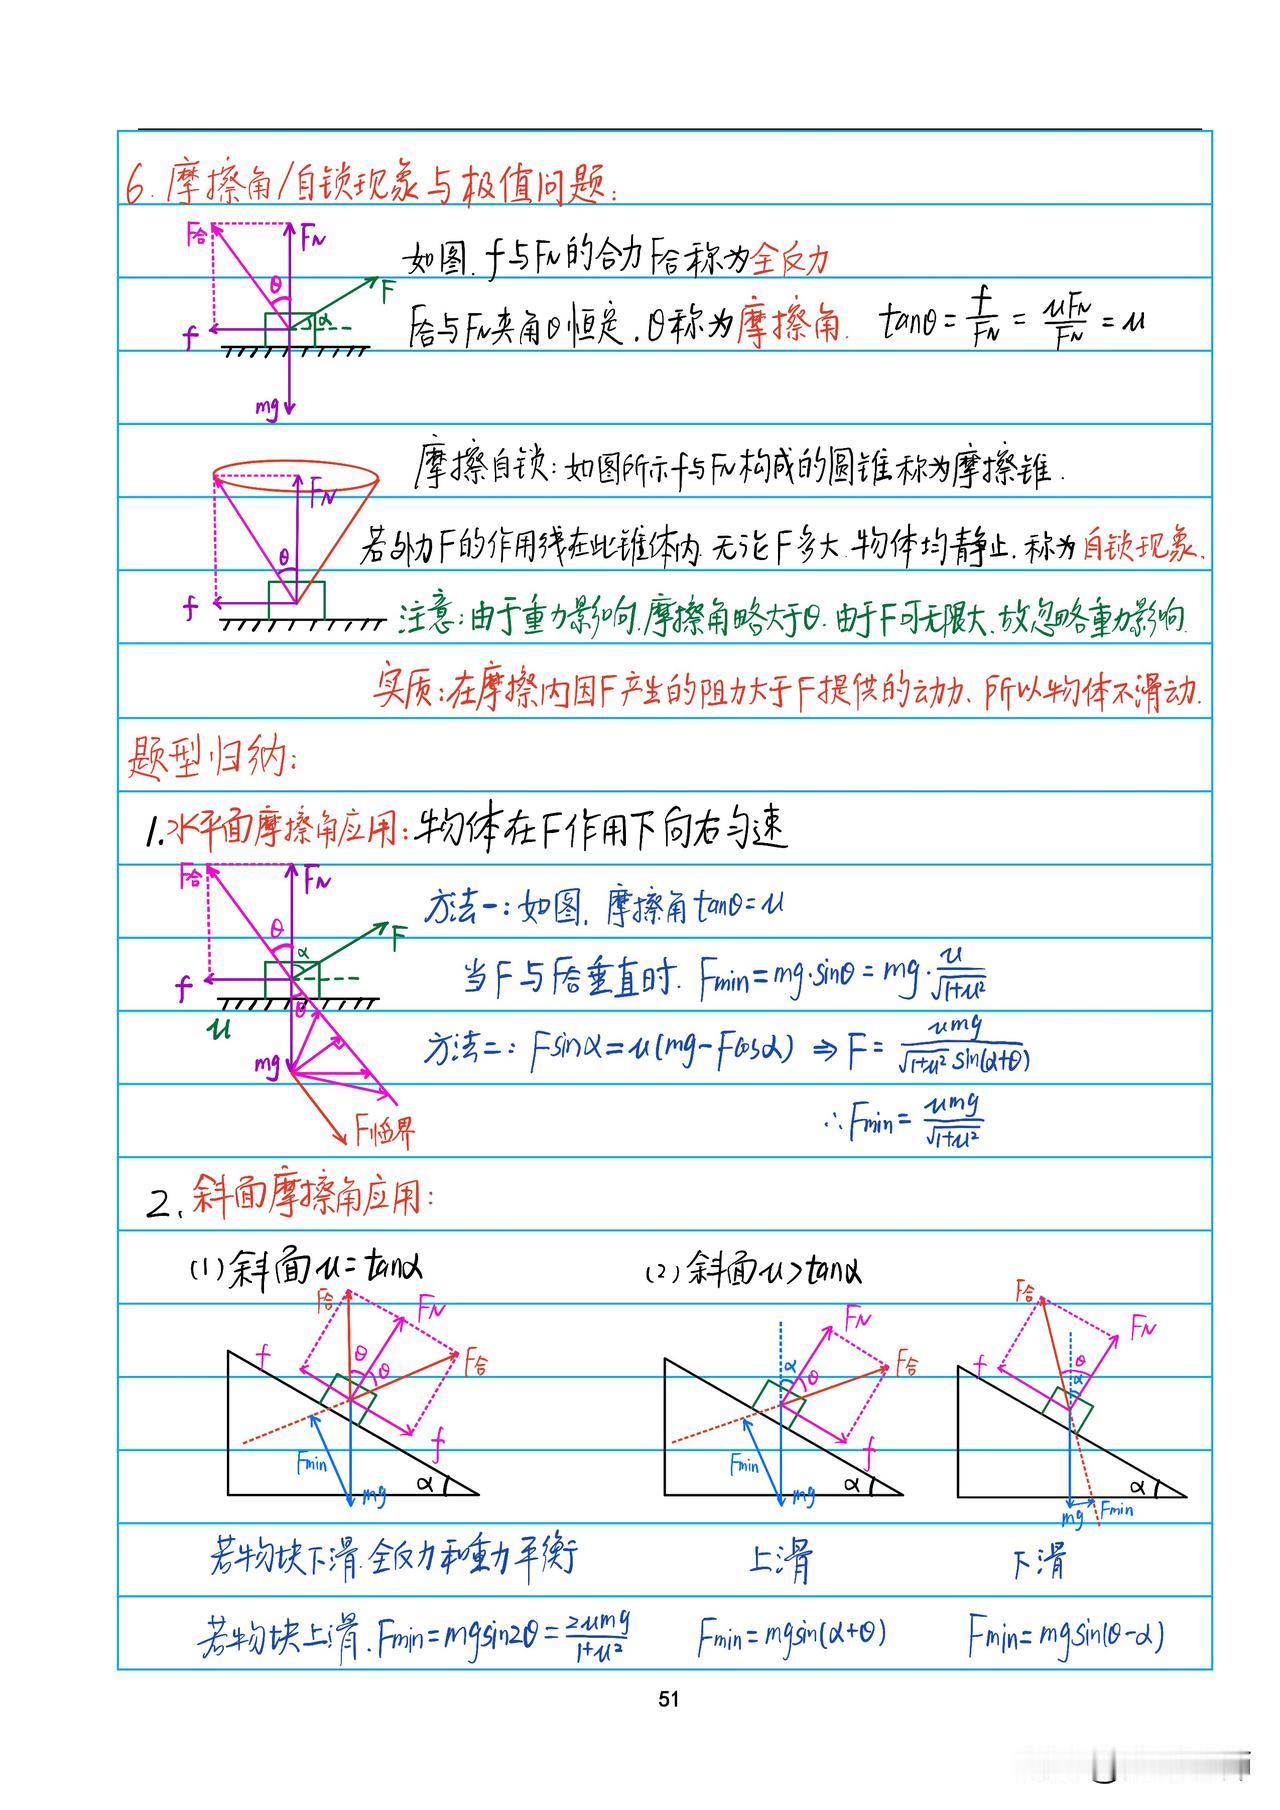 6. 摩擦角/自锁现象与极值问题：
F合 FN θ F α f mg
如图. f与FN的合力F合称为全反力
F合与FN夹角θ恒定. θ称为摩擦角. tanθ = f/FN = μFN/FN = μ
FN θ f
摩擦自锁：如图所示f与FN构成的圆锥称为摩擦锥.
若外力F的作用线在此锥体内. 无论F多大. 物体均静止. 称为自锁现象.
注意：由于重力影响. 摩擦角略大于θ. 由于F可无限大. 故忽略重力影响.
实质：在摩擦内因F产生的阻力大于F提供的动力. 所以物体不滑动.
题型归纳：
1. 水平面摩擦角应用：物体在F作用下向右匀速
F合 FN θ α F f θ μ mg F临界
方法一：如图. 摩擦角tanθ=μ
当F与F合垂直时. Fmin=mg·sinθ=mg·μ/√1+μ²
方法二：Fsinα=μ(mg-Fcosα) ⇒ F=μmg/√1+μ² sin(α+θ)
∴Fmin=μmg/√1+μ²
2. 斜面摩擦角应用：
(1) 斜面μ=tanα
(2) 斜面μ>tanα
F合 FN f θ θ F合 f Fmin mg α
FN α θ F合 f Fmin mg α
F合 FN f θ α α mg Fmin
若物块下滑. 全反力和重力平衡
上滑
下滑
若物块上滑. Fmin=mgsin2θ=2μmg/1+μ²
Fmin=mgsin(α+θ)
Fmin=mgsin(θ-α)
51